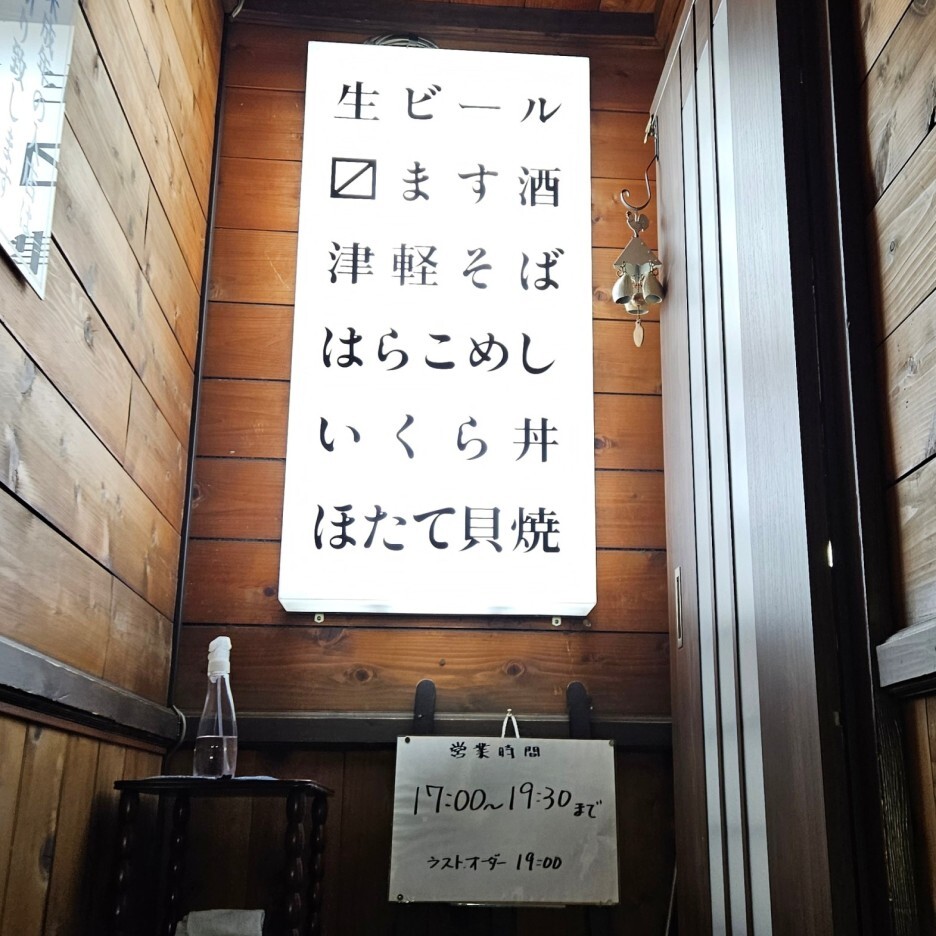 生ビール
〼ます酒
津軽そば
はらこめし
いくら丼
ほたて貝焼
営業時間
17:00~19:30まで
ラストオーダー 19:00